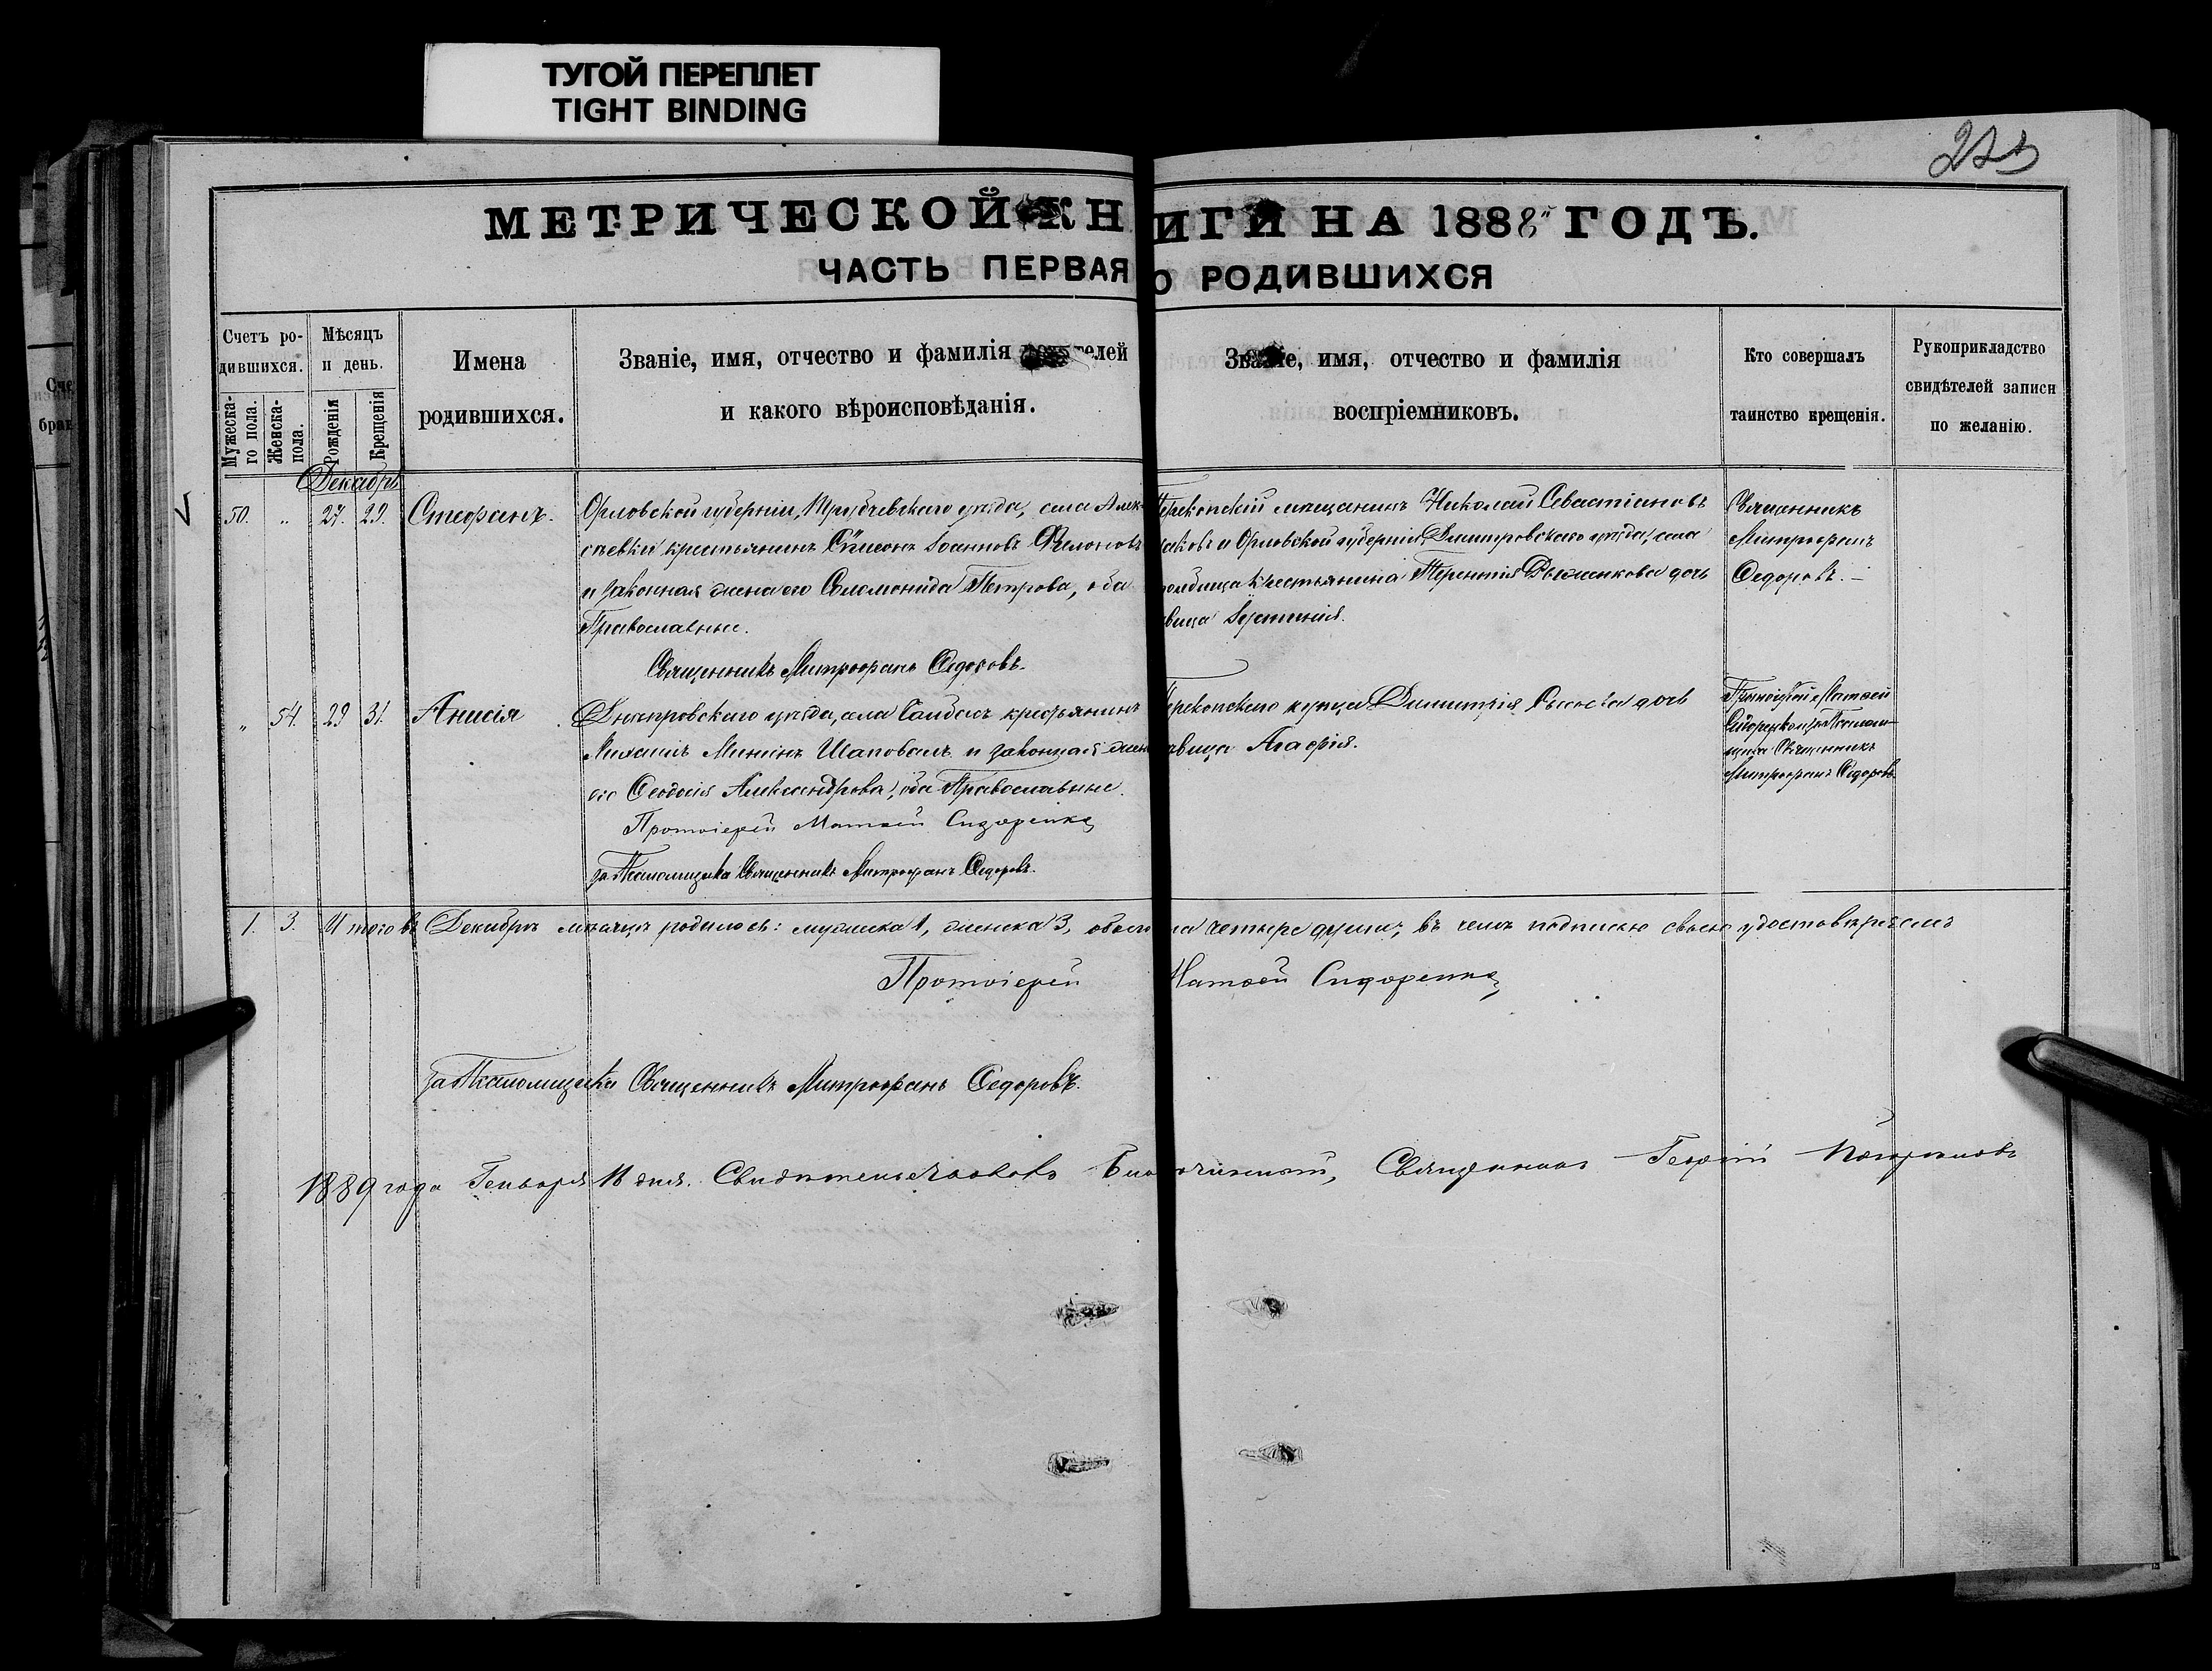 ТУГОЙ ПЕРЕПЛЕТ
TIGHT BINDING
МЕТРИЧЕСКОЙ КНИГИ НА 1888й ГОДЪ.
ЧАСТЬ ПЕРВАЯ О РОДИВШИХСЯ
Счетъ ро-
дившихся.
Мужеска-
го пола.
Женска-
пола.
Мѣсяцъ
и день.
Рожденія
Крещенія
Имена
родившихся.
Званіе, имя, отчество и фамилія елей
и какого вѣроисповѣданія.
Званіе, имя, отчество и фамилія
воспріемниковъ.
Кто совершалъ
таинство крещенія.
Рукоприкладство
свидѣтелей записи
по желанію.
Декабрь
50. „ 27. 29. Стефанъ.
Орловской губерніи, Трубчевскаго уѣзда, села Алек-
сѣевки крестьянинъ Симеонъ Іоанновъ
и законная жена его Соломонида Петрова, оба
Православные.
Священникъ Митрофанъ Ѳедоровъ.
Перекопскій мѣщанинъ Николай Севастіановъ
и Орловской губерніи Дмитровскаго уѣзда, села
крестьянина Терентія дочь
вица Іустинія.
Священникъ
Митрофанъ
Ѳедоровъ. —
„ 54. 29 31. Анисія
Днѣпровскаго уѣзда, села крестьянинъ
Михаилъ Мининъ Шаповалъ и законная жен
его Ѳеодосія Александрова, оба Православные.
Протоіерей Матѳей Сидоренко
за Псаломщика Священникъ Митрофанъ Ѳедоровъ.
Перекопскаго купца Димитрія Сысоева дочь
вица Агафія.
Протоіерей Матѳей
Сидоренко за Псалом-
щика Священникъ
Митрофанъ Ѳедоровъ.
1. 3. Итого въ Декабрѣ мѣсяцѣ родилось: мужеска 1, женска 3, обоего пола четыре души, въ чемъ подписью своею удостовѣряемъ
Протоіерей Матѳей Сидоренко
за Псаломщика Священникъ Митрофанъ Ѳедоровъ.
1889 года Генваря дня. Свидѣтельствовалъ Благочинный, Священникъ Георгій